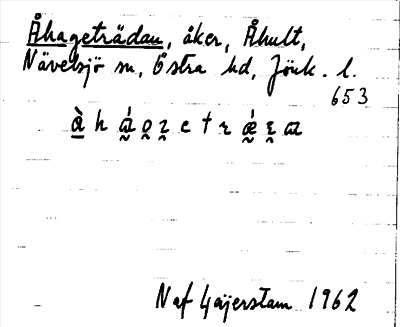 Åhageträdan, åker, Åhult,
Nävelsjö sn, Östra hd, Jönk. l.
653
Naf Gajerstam 1962